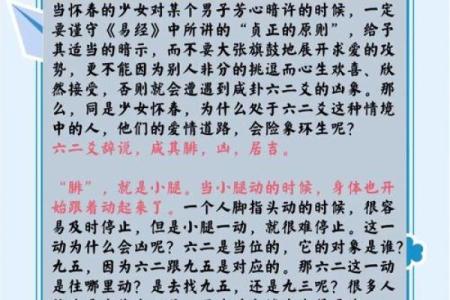 当怀春的少女对某个男子芳心暗许的时候，一定
要谨守《易经》中所讲的“贞正的原则”，给予
其适当的暗示，而不要大张旗鼓地展开求爱的攻
势，更不能因为别人非分的挑逗而心生欢喜、欣
然接受，否则就会遭遇到咸卦六二爻的凶象。那
么，同是少女怀春，为什么处于六二爻这种情境
中的人，他们的爱情道路，会险象环生呢？
六二爻辞说，咸其腓，凶，居吉。
“腓”，就是小腿。当小腿动的时候，身体也开
始跟着动起来了。一个人脚指头动的时候，很容
易及时停止，但是小腿一动，就很难停止。这一
动为什么会凶呢？六二是当位的，它的对象是谁？
九五，因为六二跟九五是对应的。那六二这一动
是往哪里动？是去找九五，还是九三呢？很多人